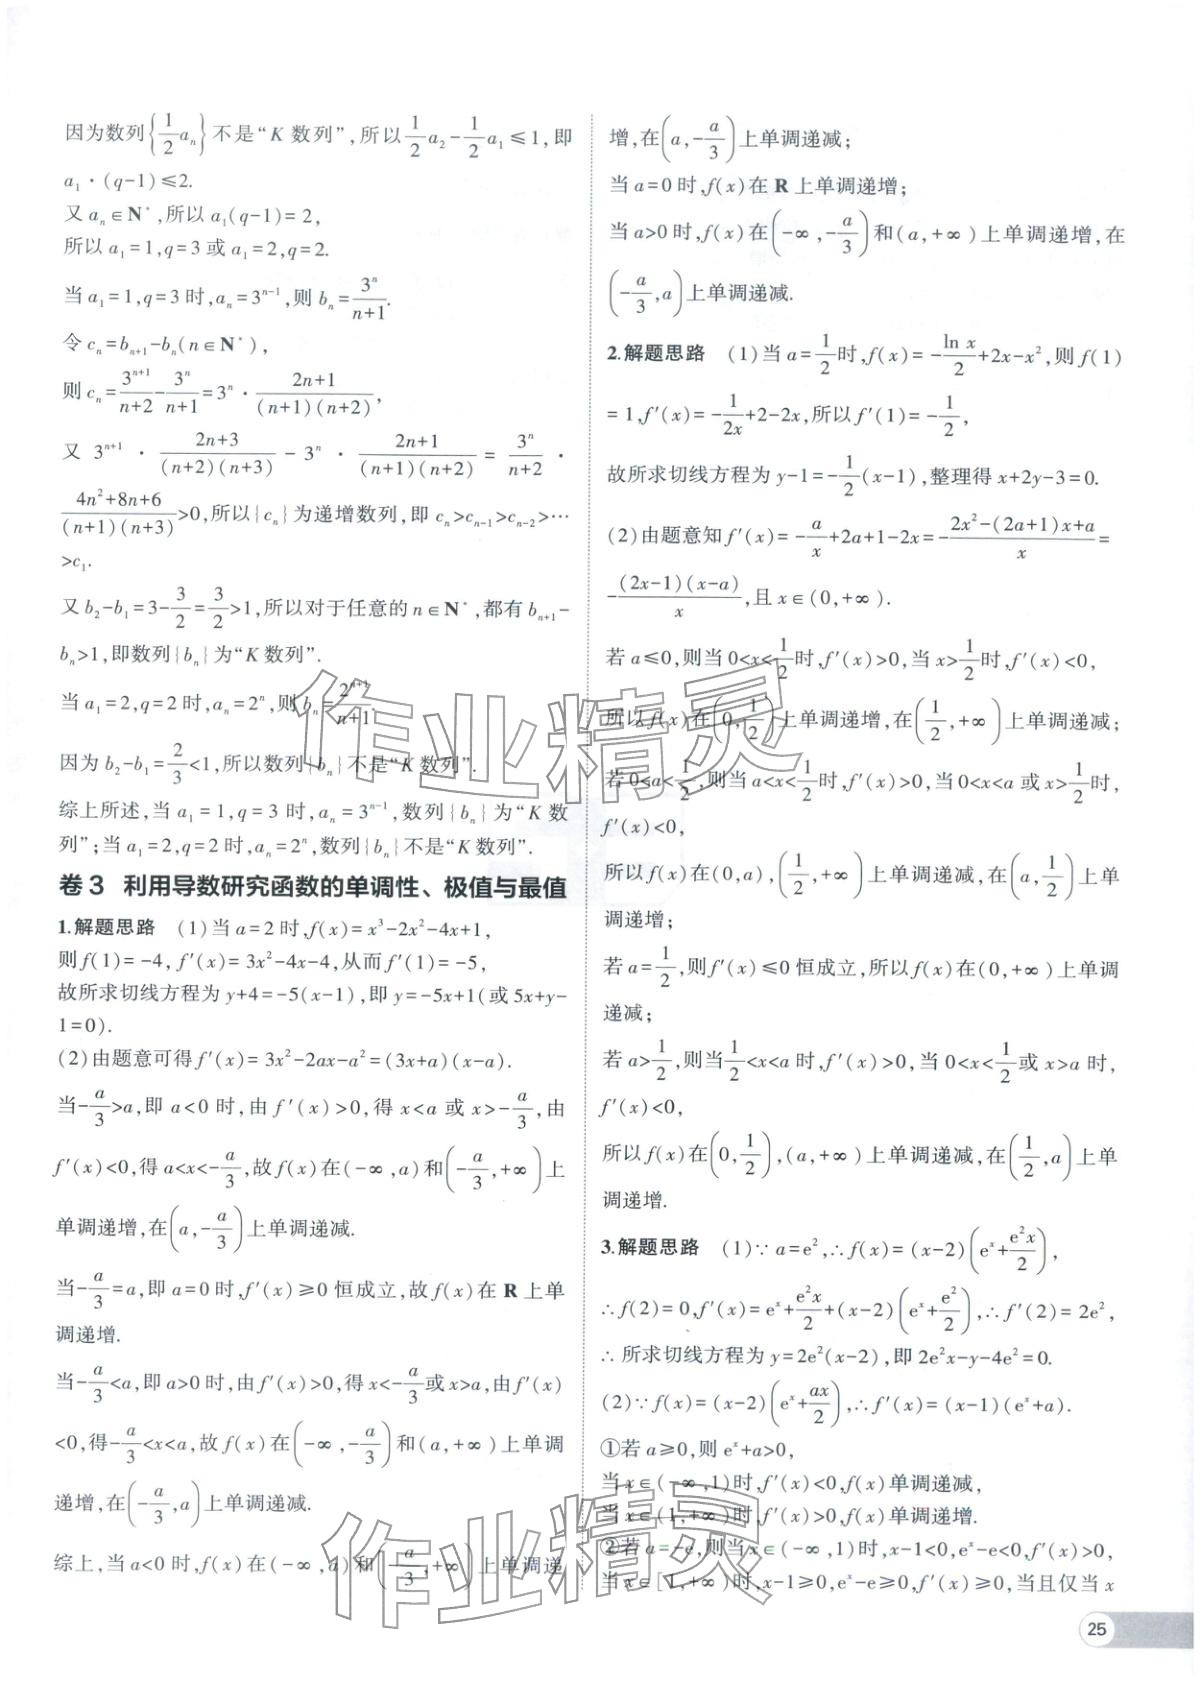 因为数列{1/2 aₙ}不是“K 数列”,所以 1/2 a₂-1/2 a₁≤1,即
a₁·(q-1)≤2.
又 aₙ∈N*,所以 a₁(q-1)=2,
所以 a₁=1,q=3 或 a₁=2,q=2.
当 a₁=1,q=3 时,aₙ=3ⁿ⁻¹,则 bₙ=3ⁿ/(n+1).
令 cₙ=bₙ₊₁-bₙ(n∈N*),
则 cₙ=3ⁿ⁺¹/(n+2)-3ⁿ/(n+1)=3ⁿ·(2n+1)/((n+1)(n+2)),
又 3ⁿ⁺¹·(2n+3)/((n+2)(n+3))-3ⁿ·(2n+1)/((n+1)(n+2))=3ⁿ/(n+2)·
(4n²+8n+6)/((n+1)(n+3))>0,所以{cₙ}为递增数列,即 cₙ>cₙ₋₁>cₙ₋₂>…
>c₁.
又 b₂-b₁=3-3/2=3/2>1,所以对于任意的 n∈N*,都有 bₙ₊₁-
bₙ>1,即数列{bₙ}为“K 数列”.
当 a₁=2,q=2 时,aₙ=2ⁿ,则 bₙ=2ⁿ⁺¹/(n+1).
因为 b₂-b₁=2/3<1,所以数列{bₙ}不是“K 数列”.
综上所述,当 a₁=1,q=3 时,aₙ=3ⁿ⁻¹,数列{bₙ}为“K 数
列”;当 a₁=2,q=2 时,aₙ=2ⁿ,数列{bₙ}不是“K 数列”.
卷 3 利用导数研究函数的单调性、极值与最值
1.解题思路 (1)当 a=2 时,f(x)=x³-2x²-4x+1,
则 f(1)=-4,f′(x)=3x²-4x-4,从而 f′(1)=-5,
故所求切线方程为 y+4=-5(x-1),即 y=-5x+1(或 5x+y-
1=0).
(2)由题意可得 f′(x)=3x²-2ax-a²=(3x+a)(x-a).
当-a/3>a,即 a<0 时,由 f′(x)>0,得 x<a 或 x>-a/3,由
f′(x)<0,得 a<x<-a/3,故 f(x)在(-∞,a)和(-a/3,+∞)上
单调递增,在(a,-a/3)上单调递减.
当-a/3=a,即 a=0 时,f′(x)≥0 恒成立,故 f(x)在 R 上单
调递增.
当-a/3<a,即 a>0 时,由 f′(x)>0,得 x<-a/3或 x>a,由 f′(x)
<0,得-a/3<x<a,故 f(x)在(-∞,-a/3)和(a,+∞)上单调
递增,在(-a/3,a)上单调递减.
综上,当 a<0 时,f(x)在(-∞,a)和(-a/3,+∞)上单调递
增,在(a,-a/3)上单调递减;
当 a=0 时,f(x)在 R 上单调递增;
当 a>0 时,f(x)在(-∞,-a/3)和(a,+∞)上单调递增,在
(-a/3,a)上单调递减.
2.解题思路 (1)当 a=1/2时,f(x)=-ln x/2+2x-x²,则 f(1)
=1,f′(x)=-1/2x+2-2x,所以 f′(1)=-1/2,
故所求切线方程为 y-1=-1/2(x-1),整理得 x+2y-3=0.
(2)由题意知 f′(x)=-a/x+2a+1-2x=-(2x²-(2a+1)x+a)/x=
-(2x-1)(x-a)/x,且 x∈(0,+∞).
若 a≤0,则当 0<x<1/2时,f′(x)>0,当 x>1/2时,f′(x)<0,
所以 f(x)在(0,1/2)上单调递增,在(1/2,+∞)上单调递减;
若 0<a<1/2,则当 a<x<1/2时,f′(x)>0,当 0<x<a 或 x>1/2时,
f′(x)<0,
所以 f(x)在(0,a),(1/2,+∞)上单调递减,在(a,1/2)上单
调递增;
若 a=1/2,则 f′(x)≤0 恒成立,所以 f(x)在(0,+∞)上单调
递减;
若 a>1/2,则当1/2<x<a 时,f′(x)>0,当 0<x<1/2或 x>a 时,
f′(x)<0,
所以 f(x)在(0,1/2),(a,+∞)上单调递减,在(1/2,a)上单
调递增.
3.解题思路 (1)∵a=e²,∴f(x)=(x-2)(eˣ+e²x/2),
∴f(2)=0,f′(x)=eˣ+e²x/2+(x-2)(eˣ+e²/2),∴f′(2)=2e²,
∴所求切线方程为 y=2e²(x-2),即 2e²x-y-4e²=0.
(2)∵f(x)=(x-2)(eˣ+ax/2),∴f′(x)=(x-1)(eˣ+a).
①若 a≥0,则 eˣ+a>0,
当 x∈(-∞,1)时,f′(x)<0,f(x)单调递减,
当 x∈(1,+∞)时,f′(x)>0,f(x)单调递增.
②若 a=-e,则当 x∈(-∞,1)时,x-1<0,eˣ-e<0,f′(x)>0,
当 x∈[1,+∞)时,x-1≥0,eˣ-e≥0,f′(x)≥0,当且仅当 x
作业精灵
作业精灵
25